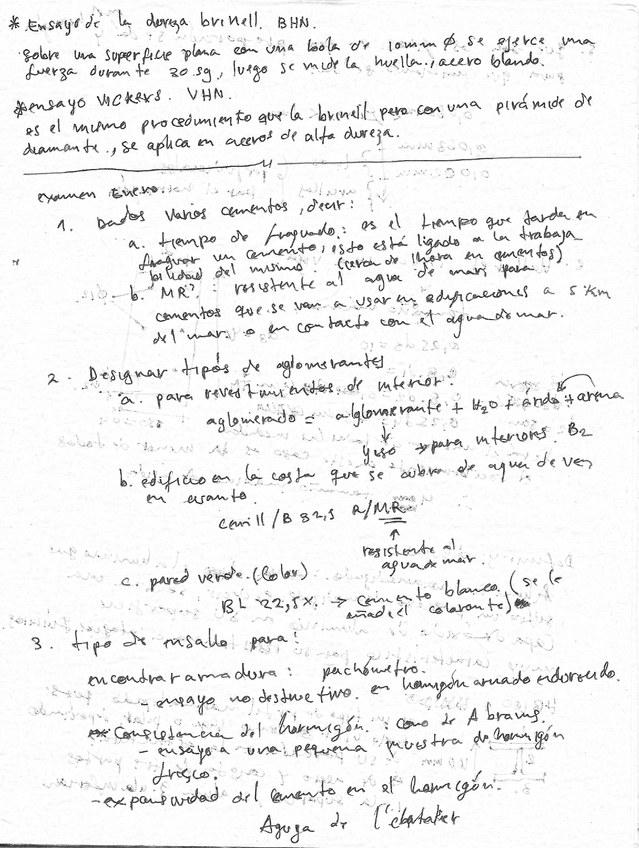 * Ensayo de la dureza brinell. BHN.
sobre una superficie plana con una bola de 10mm Ø se ejerce una
fuerza durante 30 sg, luego se mide la huella., acero blando.
*ensayo VICKERS. VHN.
es el mismo procedimiento que la brinell pero con una pirámide de
diamante., se aplica en aceros de alta dureza.
examen Enero.
1. Dados varios cementos, decir:
a. tiempo de fraguado: es el tiempo que tarda en
fraguar un cemento, esto está ligado a la trabaja
bilidad del mismo. (cerca de 1hora en cementos)
b. "MR": resistente al agua de mar: para
cementos que se van a usar en edificaciones a 5 Km
del mar o en contacto con el agua de mar.
2. Designar tipos de aglomerantes
a. para revestimientos de interior.
aglomerado = aglomerante + H2O + árido + arena
yeso → para interiores. B2
b. edificio en la costa que se cubre de agua de vez
en cuanto.
cem II/B 32,5 R/MR
resistente al
agua de mar.
c. pared verde. (Color)
BL 22,5X. → cemento blanco (se le
añade el colorante)
3. tipo de ensallo para:
encontrar armadura: pachómetro.
- ensayo no destructivo. en homigón armado endurecido.
Consistencia del hormigón. cono de Abrams.
- ensayo a una pequeña muestra de hormigón
fresco.
- expansividad del cemento en el hormigón.
Aguja de l'chatalier